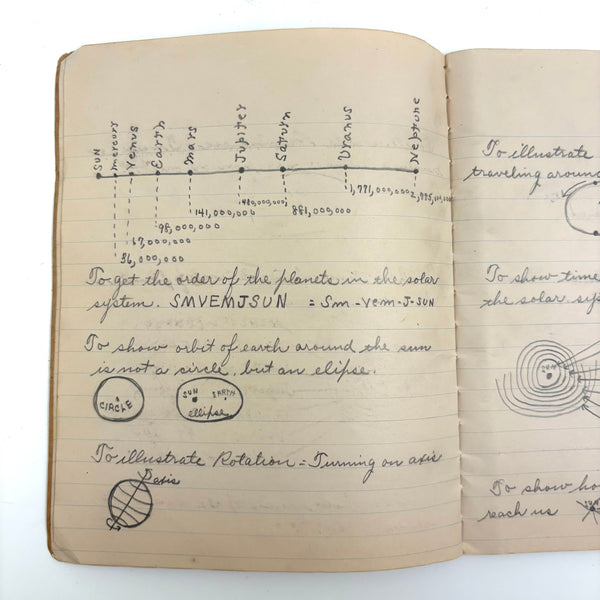 SUN
mercury
Venus
Earth
mars
Jupiter
Saturn
Uranus
Neptune
1,771,000,000
480,000,000
141,000,000
881,000,000
98,000,000
67,000,000
36,000,000
To get the order of the planets in the solar
system. SMVEMJSUN = Sm-Vem-J-SUN
To show orbit of earth around the sun
is not a circle, but an elipse.
CIRCLE
SUN EARTH
ellipse
To illustrate Rotation = Turning on axis
axis
To illustrate
traveling around
To show time
the solar sys
SUN
To show ho
reach us